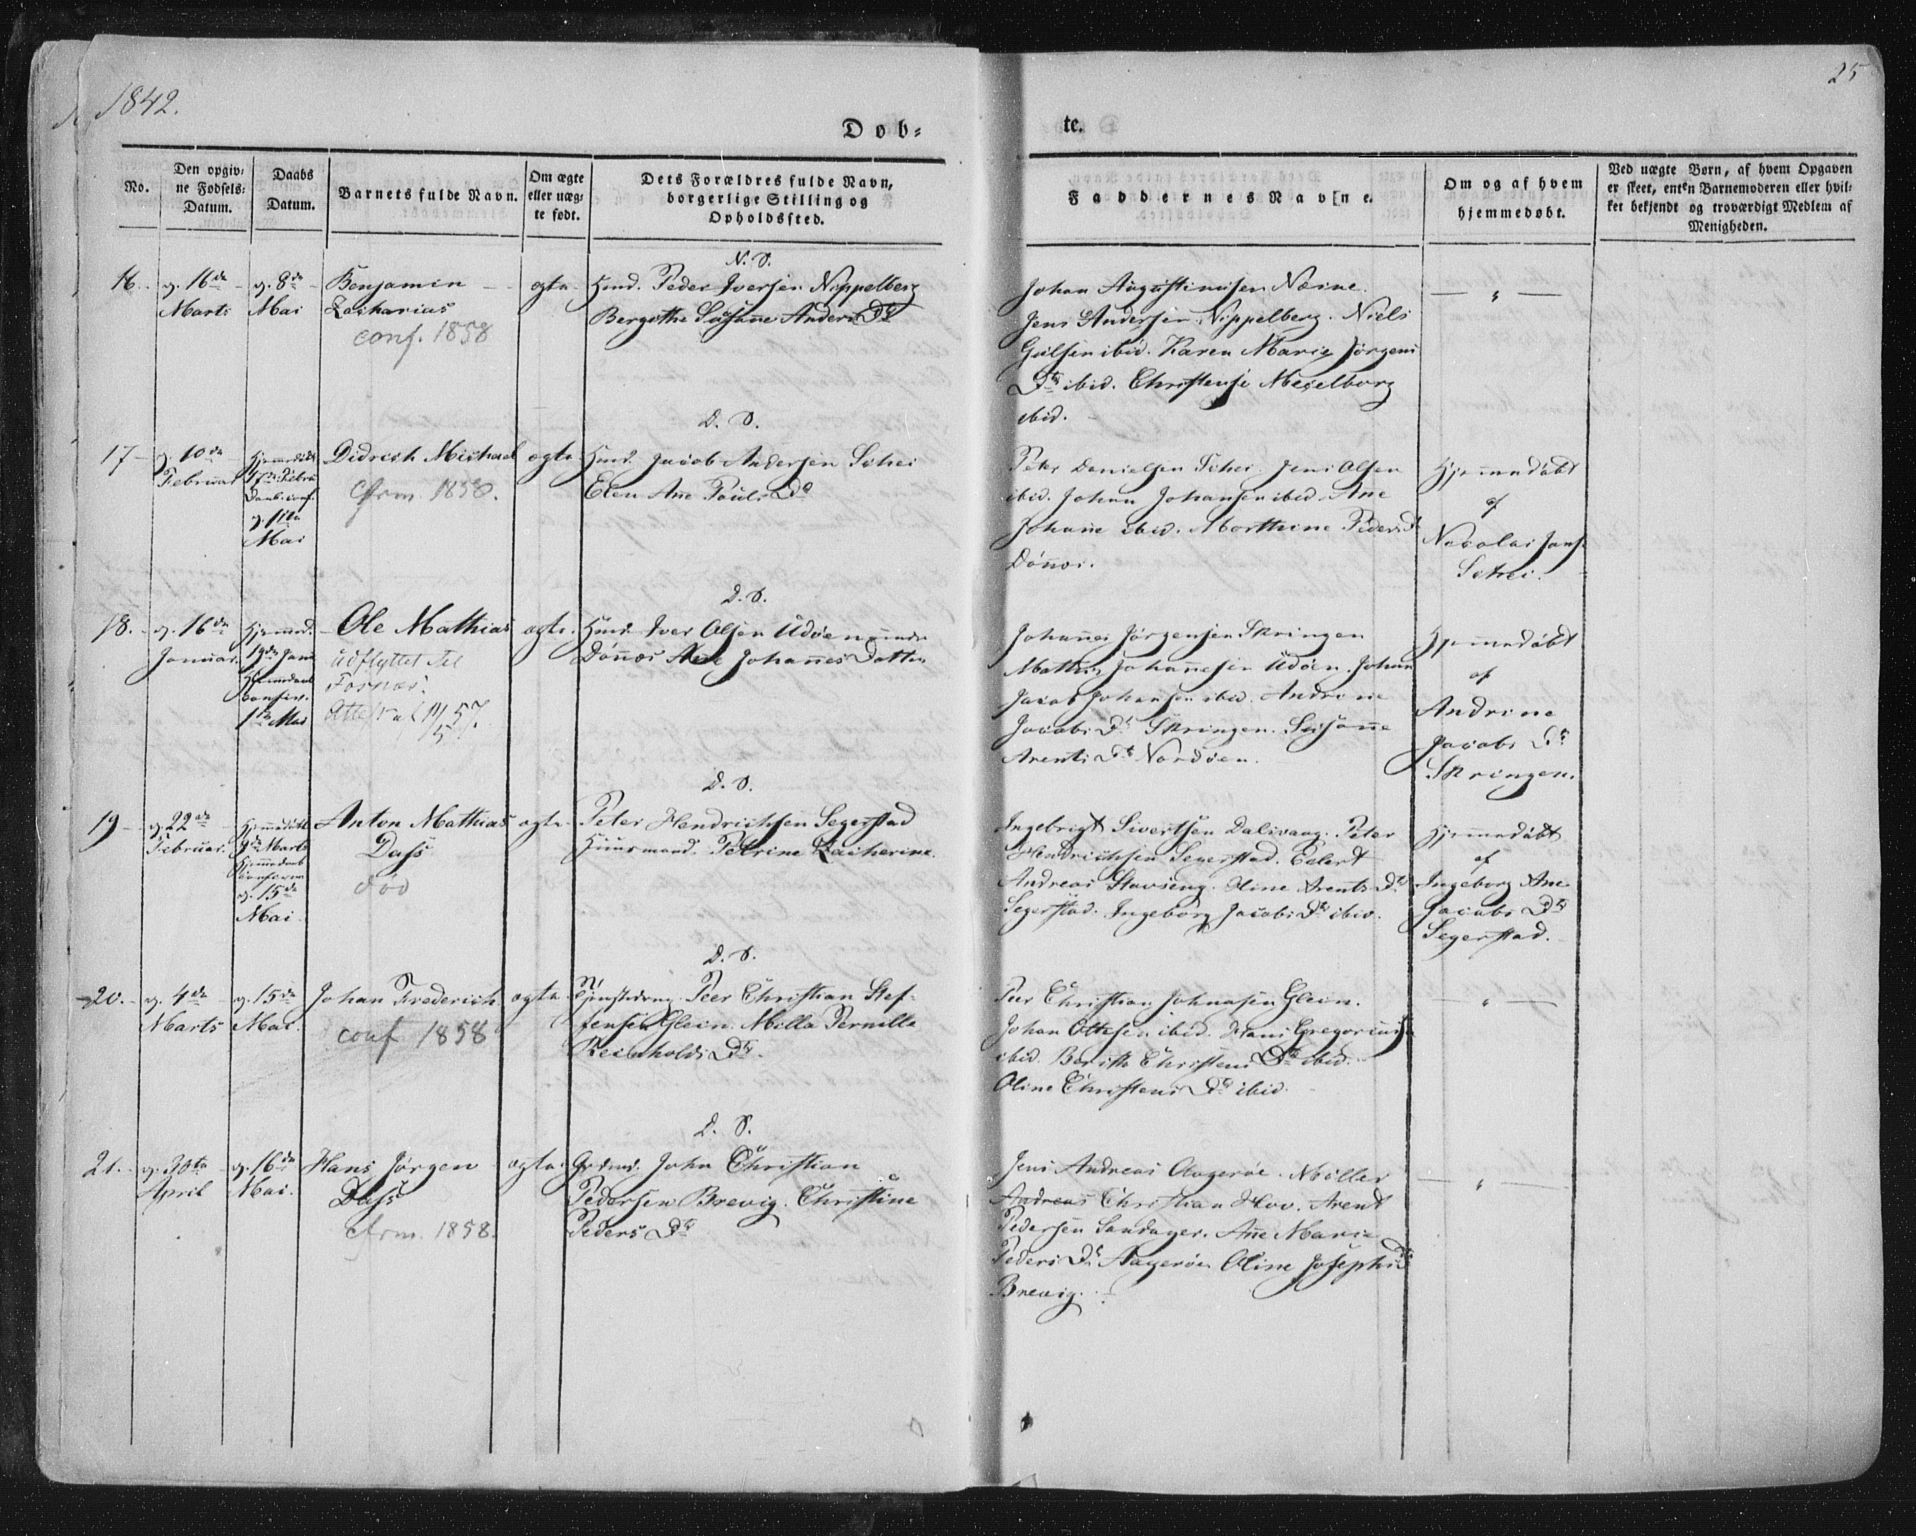 1842.
25
Døb-
te.
No.
Den opgiv-
ne Fødsels-
Datum.
Daabs
Datum.
Barnets fulde Navn.
Om ægte
eller uæg-
te født.
Dets Forældres fulde Navn,
borgerlige Stilling og
Opholdssted.
Faddernes Navne.
Om og af hvem
hjemmedøbt.
Ved uægte Børn, af hvem Opgaven
er skeet, enten Barnemoderen eller hvil-
ket bekjendt og troværdigt Medlem af
Menigheden.
N. S.
16. d. 16de
Marts
d. 8de
Mai
Benjamin
Zacharias
conf. 1858
ægte
Huusm. Peder Iversen Nippelberg
Bergithe Susanne Anders Dr
Johan Augustinusen Næsne.
Jens Andersen Nippelberg. Niels
ibid. Karen Marie Jørgens
Dr ibid. Christense Meselborg
ibid.
D. S.
17 d. 10de
Februar
Hjemmedøbt
17de Febru
Daab. conf.
d. 11te
Mai
Didrich Michael
Cfrm. 1858.
ægte
Huusm. Jacob Andersen Schei
Elen Ane Pauls Dr
Peter Danielsen Schei. Jens Olsen
ibid. Johan Johansen ibid. Ane
Johanne ibid. Morthine Peders Dr
Dønnes.
Hjemmedøbt
af
Nicolai Jans.
Schei.
D. S.
18. d. 16de
Januar.
Hjemmed.
19de Janu
Hjemmedaab
confir.
1ste Mai
Ole Mathias
udflyttet til
Fosnæs.
Attest af 14/5 57.
ægte
Huusm. Iver Olsen Udøen under
Dønnes Ane Johannes Datter
Johannes Jørgensen Skringen
Mathis Johannesen Udøen. Johan
Jacob Johansen ibid. Andrine
Jacobs Dr Skringen. Susanne
Arents Dr Nordøen.
Hjemmedøbt
af
Andrine
Jacobs Dr
Skringen.
D. S.
19 d. 22de
Februar.
Hjemmedøbt
9de Marts
Hjemmedaab
conform
d. 15de
Mai.
Anton Mathias
Dass
død
ægte
Peter Hendrichsen Segerstad
Huusmand. Petrine Catherine.
Ingebrigt Sivertsen Dalsvaag. Peter
Hendrichsen Segerstad. Edert
Andreas Stavseng. Oline Arents Dr
Segerstad. Ingeborg Jacobs Dr ibid.
Hjemmedøbt
af
Ingeborg Ane
Jacobs Dr
Segerstad.
D. S.
20. d. 4de
Marts
d. 15de
Mai.
Johan Frederich
conf 1858
ægte
Tjenstedreng Peer Christian Stef-
fensen Glein. Milla Pernille
Reinholds Dr.
Peer Christian Johnasen Glein.
Johan Ottesen ibid. Hans Gregoriusen
ibid. Beritte Christens Dr ibid.
Oline Christens Dr ibid.
D. S.
21. d. 30te
April
d. 16de
Mai.
Hans Jørgen
Dass
Cfrm. 1858.
ægte
Grdmd. John Christian
Pedersen Brevig. Christine
Peders Dr
Jens Andreas Aagerøe. Møller
Andreas Christian Hov. Arent
Pedersen Sandager. Ane Marie
Peders Dr Aagerøe. Oline Josephs Dr
Brevig.